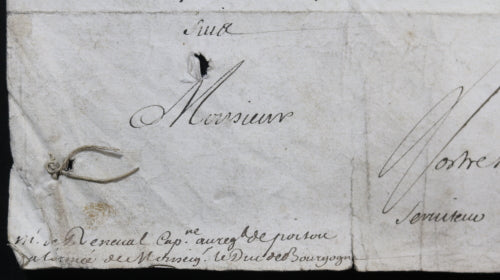 suis
Monsieur
Vostre
serviteur
mr. de Reneual Capne. au regt. de poitou
a l'armée de Monseig. le Duc de Bourgogne